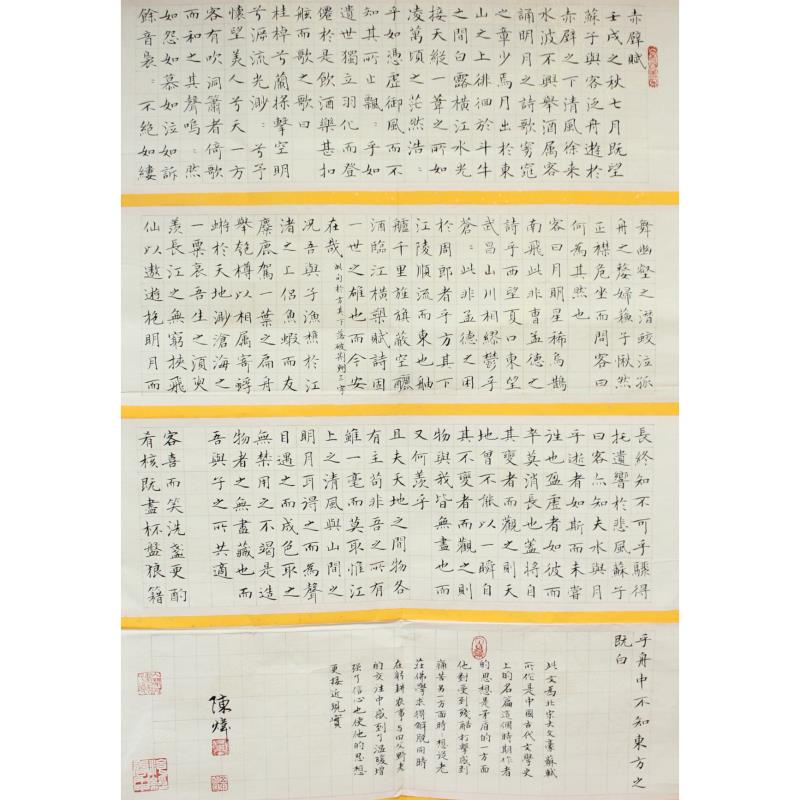 赤壁賦
壬戌之秋七月既望
蘇子與客泛舟遊於
赤壁之下清風徐來
水波不興舉酒屬客
誦明月之詩歌窈窕
之章少焉月出於東
山之上徘徊於斗牛
之間白露橫江水光
接天縱一葦之所如
凌萬頃之茫然浩〻
乎如憑虛御風而不
知其所止飄〻乎如
遺世獨立羽化而登
僊於是飲酒樂甚扣
舷而歌之歌曰
桂棹兮蘭槳擊空明
兮溯流光渺〻兮予
懷望美人兮天一方
客有吹洞簫者倚歌
而和之其聲嗚〻然
如怨如慕如泣如訴
餘音裊〻不絕如縷
舞幽壑之潛蛟泣孤
舟之嫠婦蘇子愀然
正襟危坐而問客曰
何為其然也
客曰月明星稀烏鵲
南飛此非曹孟德之
詩乎西望夏口東望
武昌山川相繆鬱乎
蒼〻此非孟德之困
於周郎者乎方其下
江陵順流而東也舳
艫千里旌旗蔽空釃
酒臨江橫槊賦詩固
一世之雄也而今安
在哉 此句於方其下落破荊州三字
況吾與子漁樵於江
渚之上侶魚蝦而友
麋鹿駕一葉之扁舟
舉匏樽以相屬寄蜉
蝣於天地渺滄海之
一粟哀吾生之須臾
羨長江之無窮挾飛
仙以遨遊抱明月而
長終知不可乎驟得
托遺響於悲風蘇子
曰客亦知夫水與月
乎逝者如斯而未嘗
往也盈虛者如彼而
卒莫消長也蓋將自
其變者而觀之則天
地曾不能以一瞬自
其不變者而觀之則
物與我皆無盡也而
又何羨乎
且夫天地之間物各
有主苟非吾之所有
雖一毫而莫取惟江
上之清風與山間之
明月耳得之而為聲
目遇之而成色取之
無禁用之不竭是造
物者之無盡藏也而
吾與子之所共適
客喜而笑洗盞更酌
肴核既盡杯盤狼籍
乎舟中不知東方之
既白
此文為北宋大文豪蘇軾
所作是中國古代文學史
上的名篇這個時期作者
的思想是矛盾的一方面
他對受到殘酷打擊感到
痛苦另一方面時想從老
莊佛學求得解脫同時
在躬耕農事與田父野老
的交往中感到了溫暖增
强了信心也使他的思想
更接近現實
陳煒